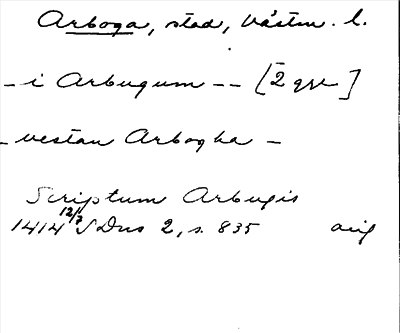 Arboga, stad, Västm. l.
– i Arbugum – – [2 ggr]
– vestan Arbogha –
Scriptum Arbugis
1414 12/3 SDns 2, s. 835 orig